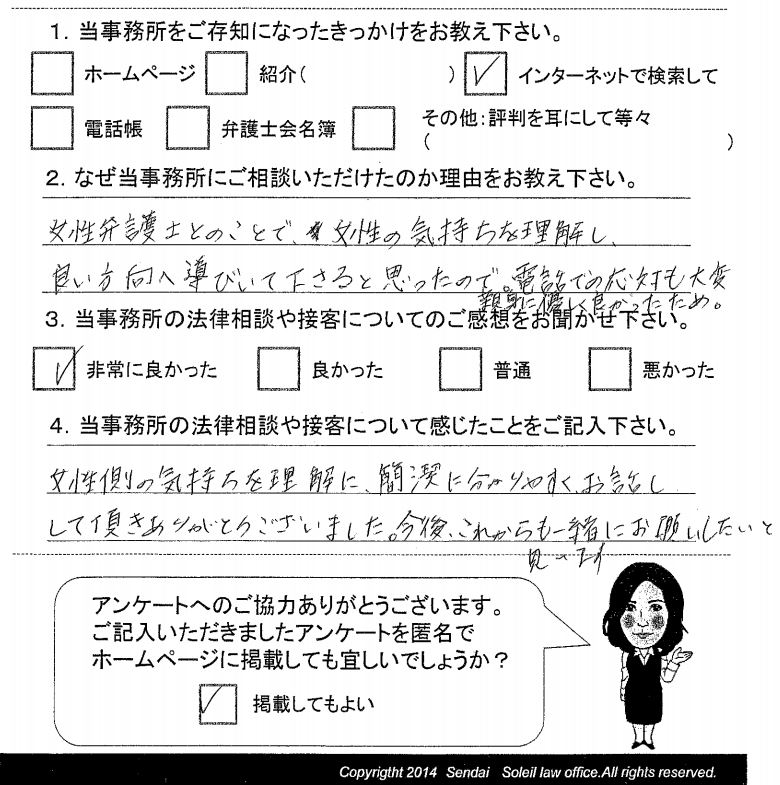 1. 当事務所をご存知になったきっかけをお教え下さい。
ホームページ 紹介( ) インターネットで検索して
電話帳 弁護士会名簿 その他:評判を耳にして等々
( )
2. なぜ当事務所にご相談いただけたのか理由をお教え下さい。
女性弁護士とのことで、女性の気持ちを理解し、
良い方向へ導びいて下さると思ったので。電話での応対も大変
親身に優しく良かったため。
3. 当事務所の法律相談や接客についてのご感想をお聞かせ下さい。
非常に良かった 良かった 普通 悪かった
4. 当事務所の法律相談や接客について感じたことをご記入下さい。
女性側の気持ちを理解に、簡潔に分かりやすく、お話し
して頂きありがとうございました。今後、これからも一緒にお願いしたいと
アンケートへのご協力ありがとうございます。
ご記入いただきましたアンケートを匿名で
ホームページに掲載しても宜しいでしょうか?
掲載してもよい
Copyrigtht 2014 Sendai Soleil law office.All rights reserved.